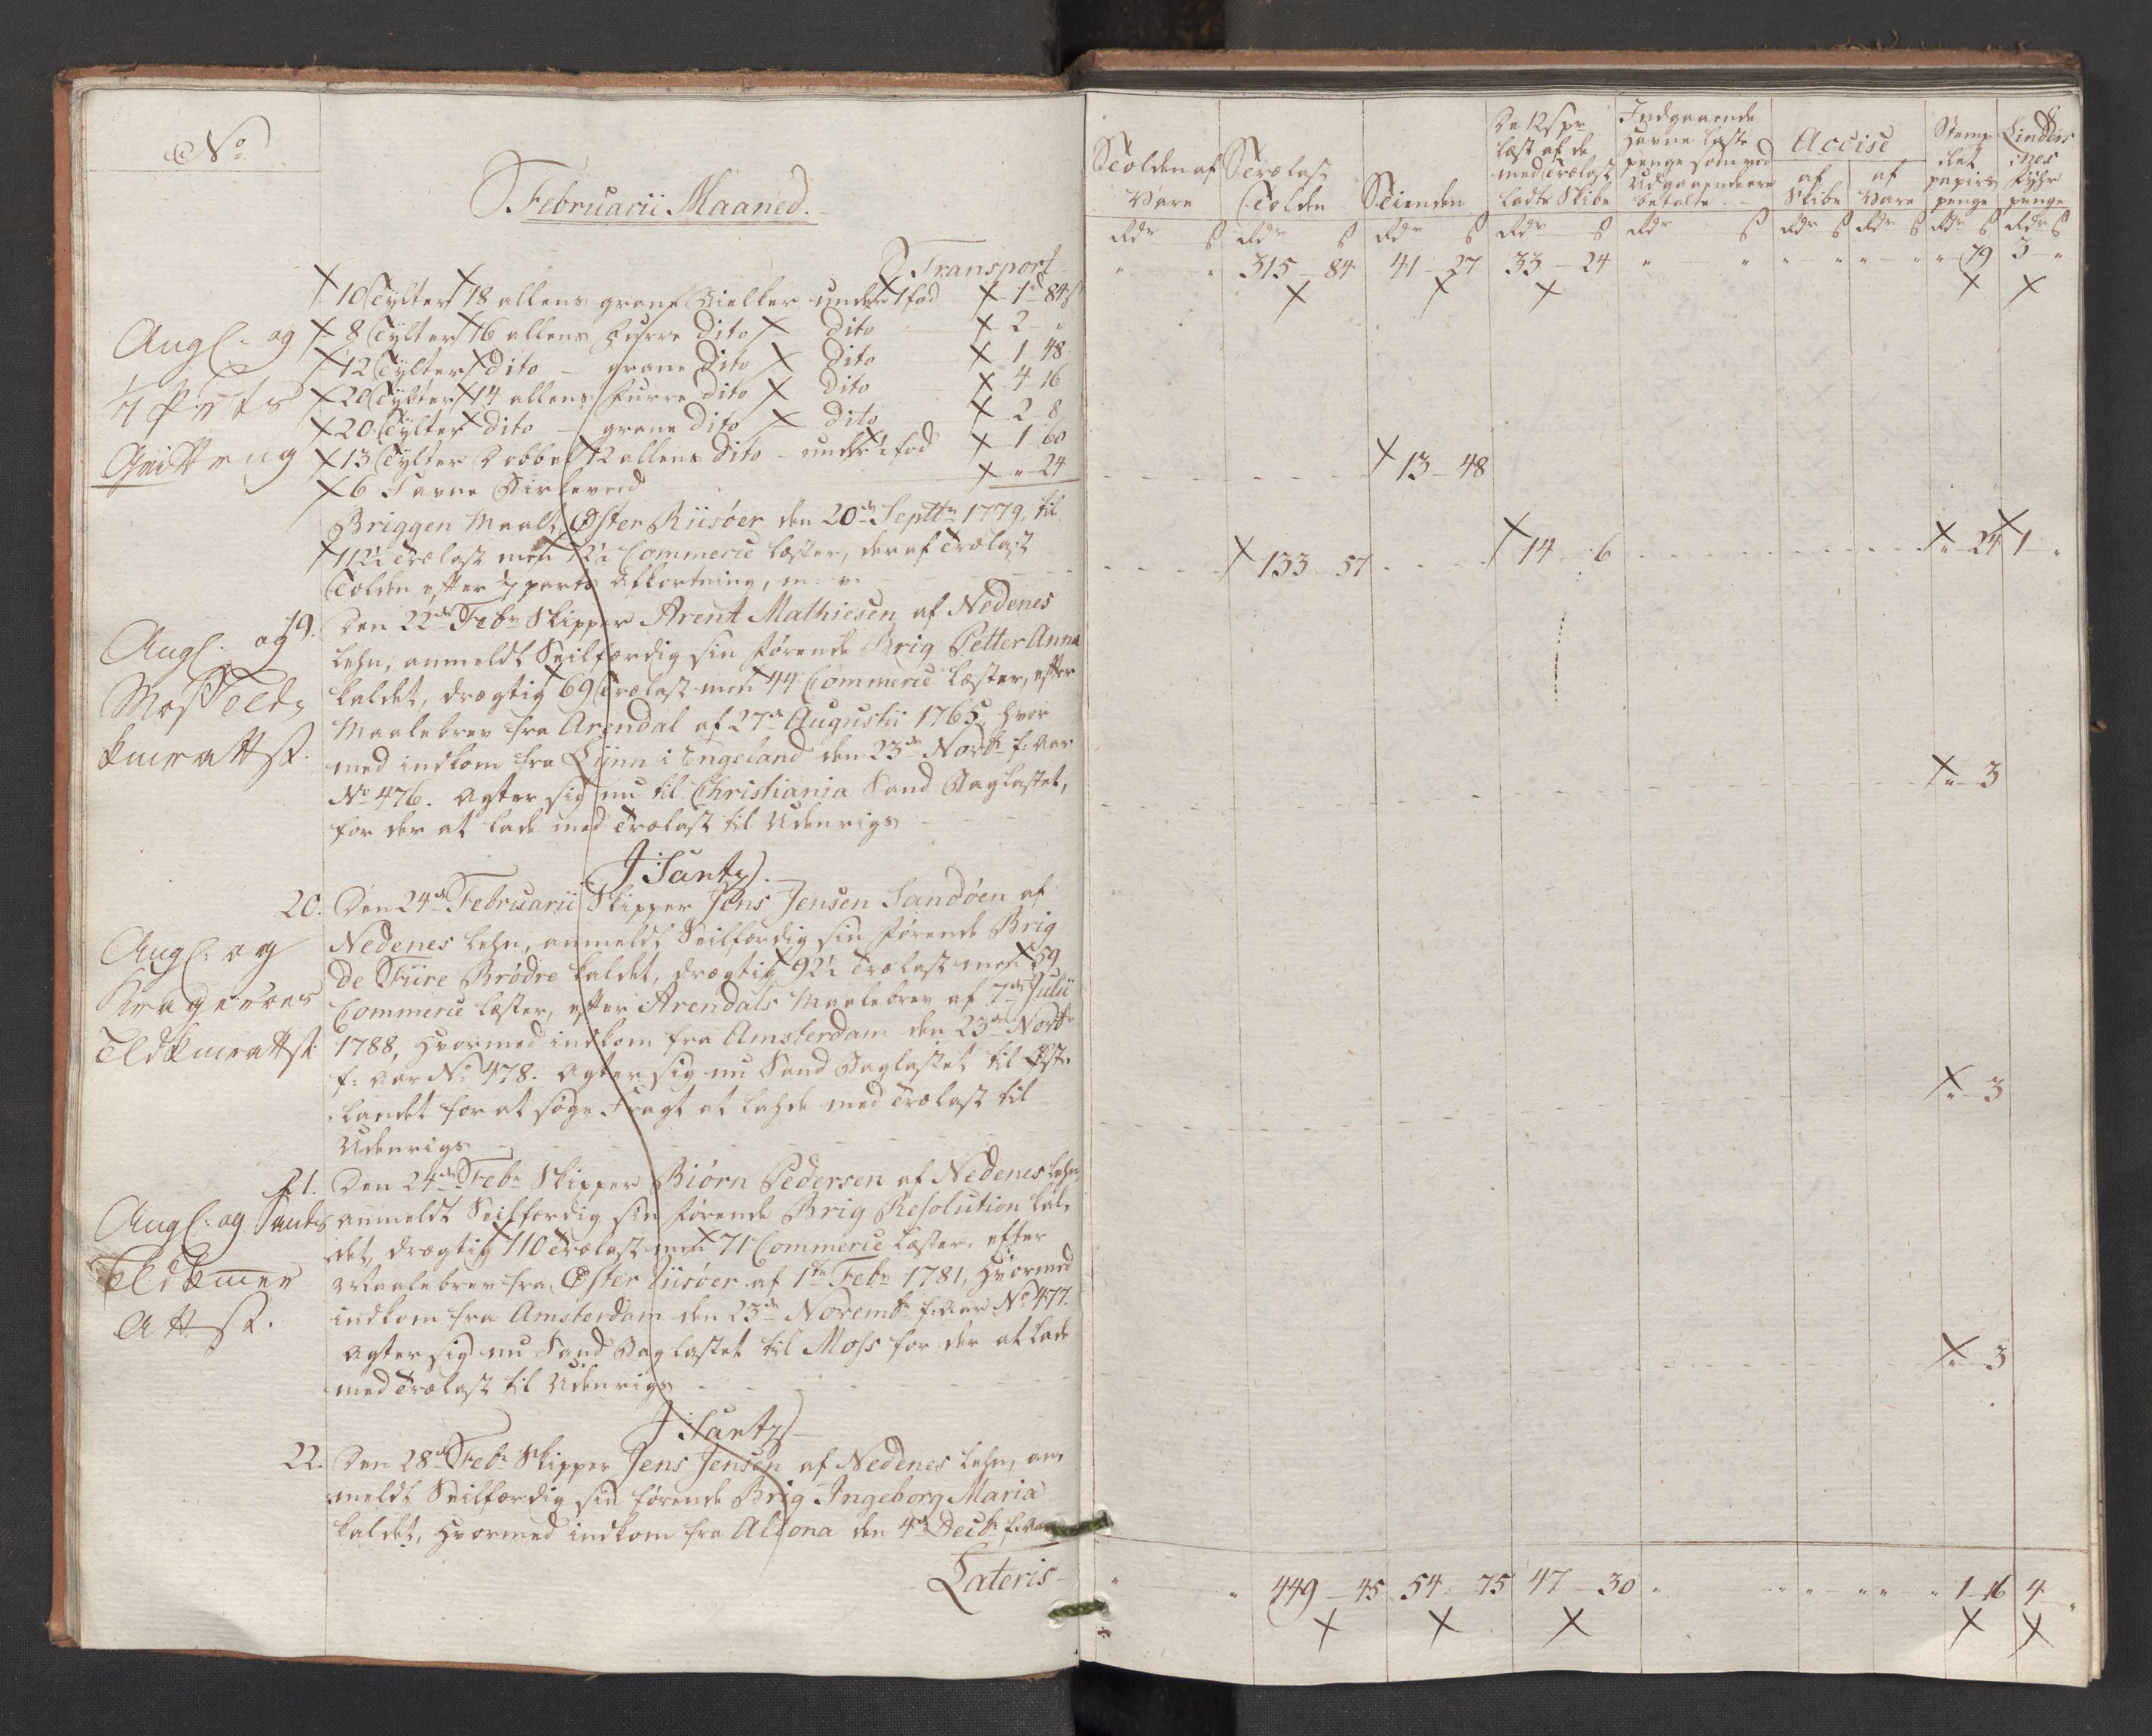 No
Februarii Maaned.
Transport
10 Tylter 18 allens grane Bielker under 1 fod 1 rd 84 s
8 Tylter 16 allens furre dito dito 2 "
12 Tylter dito - grane dito dito 1 48
20 Tylter 14 allens furre dito dito 4 16
20 Tylter dito - grane dito dito 2 8
13 Tylter Dobbel 12 allens dito - under 1 fod 1 60
6 Favne Birkeved " 24
Angl: og
Briggen Maalt Øster Riisøer den 20de Septbr 1779, til
112½ Trælast men 72½ Commerce Læster, deraf Trælast
Tolden efter parts afkortning, m: v.
19. Den 22de Febr Skipper Arent Mathiesen af Nedenes
Lehn, anmeldt Seilfærdig sin førende Brig Petter Anna
kaldet, drægtig 69 Trælast men 44 Commerce Læster, efter
Maalebrev fra Arendal af 27de Augustii 1765, hvor
med indkom fra Lÿnn i Engeland den 23de Novbr f: Aar
No 476. agter sig nu til Christiania Sand Baglastet,
for der at lade med Trælast til Udenrigs
Angl: og
J Santz
20. Den 24de Februarii Skipper Jens Jensen Sandøen af
Nedenes Lehn, anmeldt Seilfærdig sin førende Brig
De Fiire Brødre kaldet, drægtig 92½ Trælast men 59
Commerce Læster, efter Arendals Maalebrev af 7de Julii
1788, hvormed indkom fra Amsterdam den 23de Novbr
f: Aar No 478. agter sig nu Sand Baglastet til Øst-
landet for at søge Fragt at lahde med Trælast til
Udenrigs
Angl: og
Krageröes
21. Den 24de Febr Skipper Biørn Pedersen af Nedenes Lehn
anmeldt Seilfærdig sin førende Brig Resolution kal-
det, drægtig 110 Trælast men 71 Commerce Læster, efter
Maalebrev fra Øster Riisøer af 1ste Febr 1781, hvormed
indkom fra Amsterdam den 23de Novembr f: Aar No 477.
agter sig nu Sand Baglastet til Moss for der at lade
med Trælast til Udenrigs
Angl: og
J Santz
22. Den 28de Febr Skipper Jens Jensen af Nedenes Lehn, an-
meldt Seilfærdig sin førende Brig Ingeborg Maria
kaldet, hvormed indkom fra Altona den 4de Decbr f: Aar
Lateris
Tolden af Vare
Trælast Tolden
Tienden
De 12 s pr læst af de med Trælast ladte Skibe
Indgaaende Havne Læste penge som ved Udgaaende ere betalte
Accise
af Skibe
af Vare
Stemplet papirs penge
Lindes nes Fyhr penge
Rdr s Rdr s Rdr s Rdr s Rdr s Rdr s Rdr s Rdr s Rdr s
" " 315 - 84 41 - 27 33 - 24 " " " " " " " 79 3 "
13 - 48
133 - 57 14 - 6 " 24 1 "
" 3
" 3
" 3
" " 449 - 45 54 - 75 47 - 30 " " " " " 1 - 16 4 "